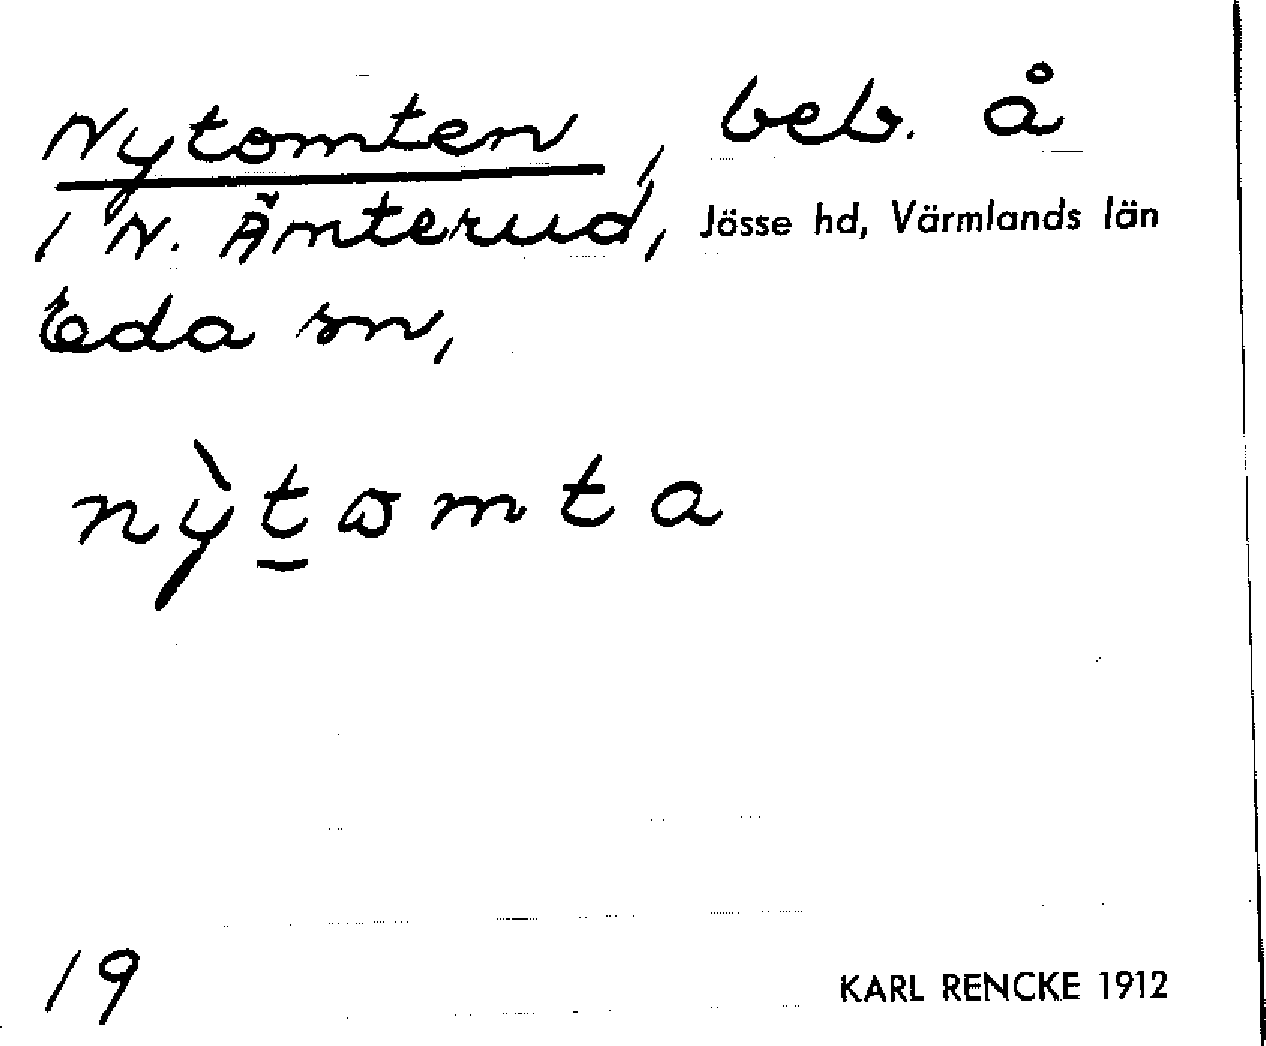 Nytomten, beb. å
1 N. Ämterud, Jösse hd, Värmlands län
Eda sn,
nỳt̲ɷmta
19
KARL RENCKE 1912